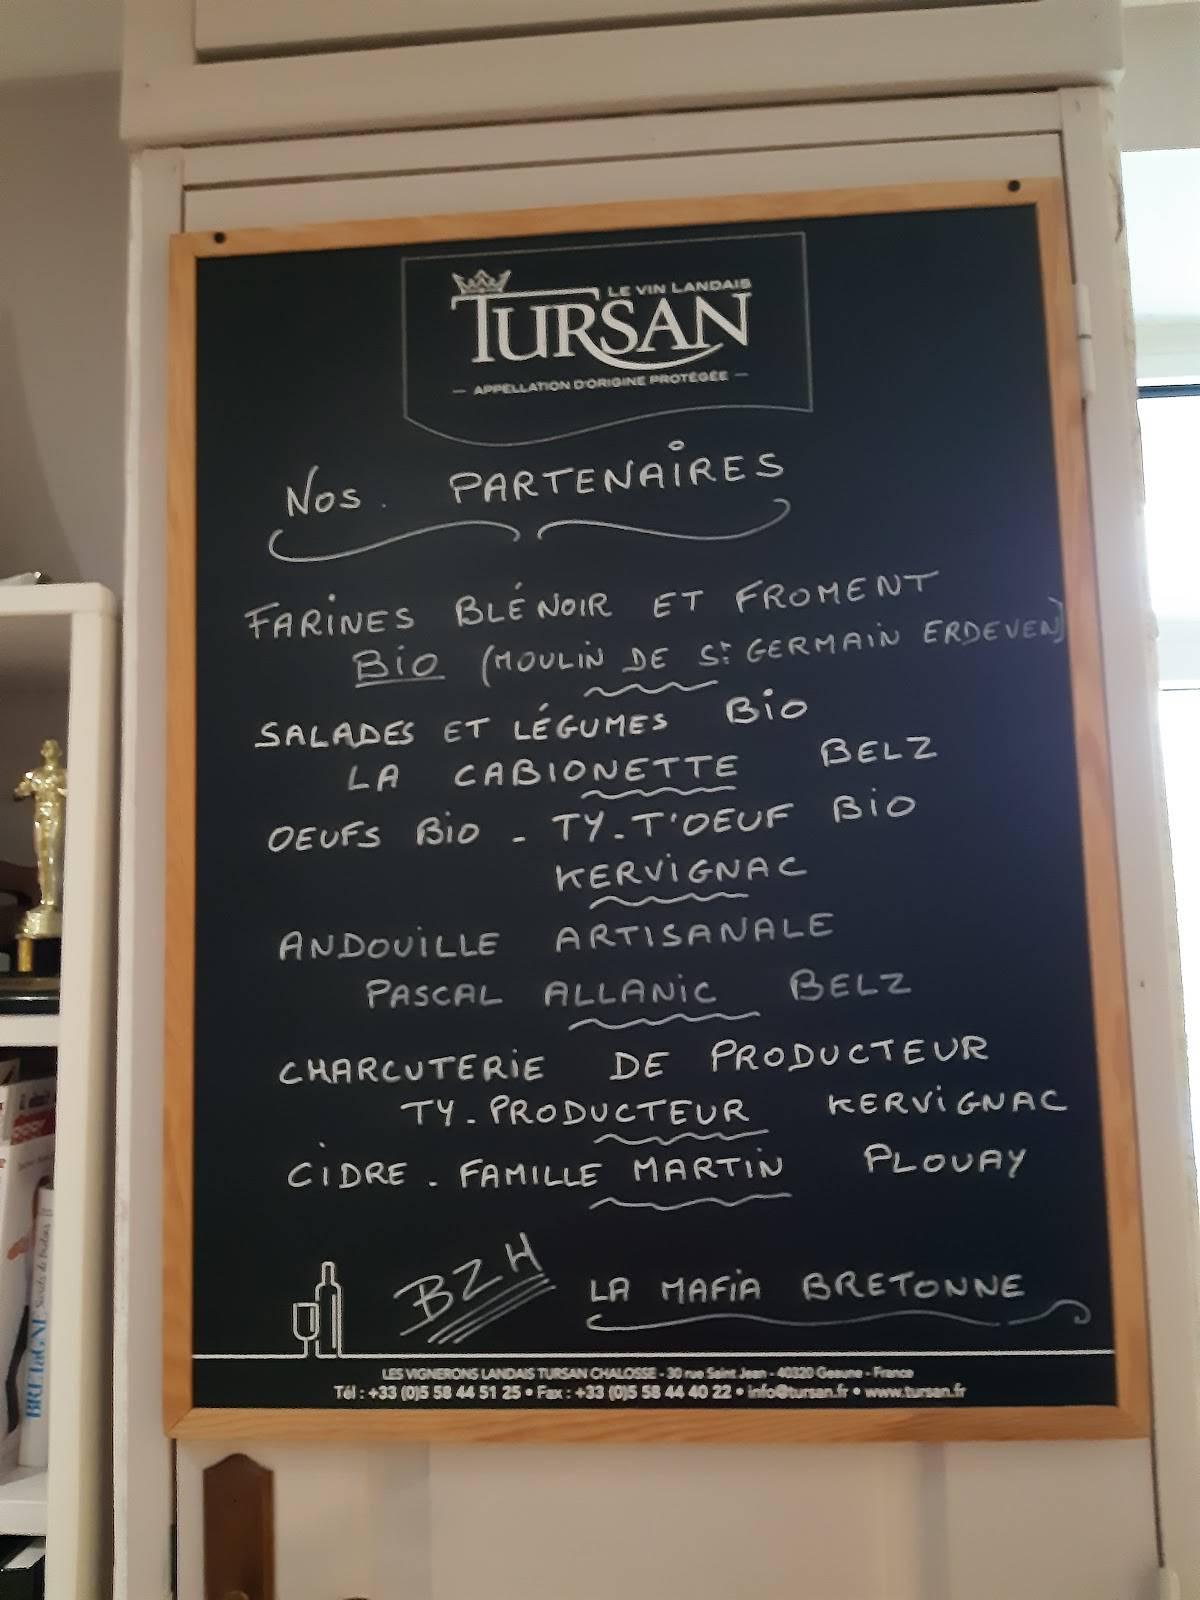 LE VIN LANDAIS
TURSAN
— APPELLATION D'ORIGINE PROTÉGÉE —
NOS. PARTENAIRES
FARINES BLÉ NOIR ET FROMENT
BIO (MOULIN DE St GERMAIN ERDEVEN)
SALADES ET LÉGUMES BIO
LA CABIONETTE BELZ
OEUFS BIO - TY-T'OEUF BIO
KERVIGNAC
ANDOUILLE ARTISANALE
PASCAL ALLANIC BELZ
CHARCUTERIE DE PRODUCTEUR
TY-PRODUCTEUR KERVIGNAC
CIDRE - FAMILLE MARTIN PLOUAY
BZH LA MAFIA BRETONNE
LES VIGNERONS LANDAIS TURSAN CHALOSSE - 30 rue Saint Jean - 40320 Geaune - France
Tél : +33 (0)5 58 44 51 25 • Fax : +33 (0)5 58 44 40 22 • info@tursan.fr • www.tursan.fr
BRETAGNE